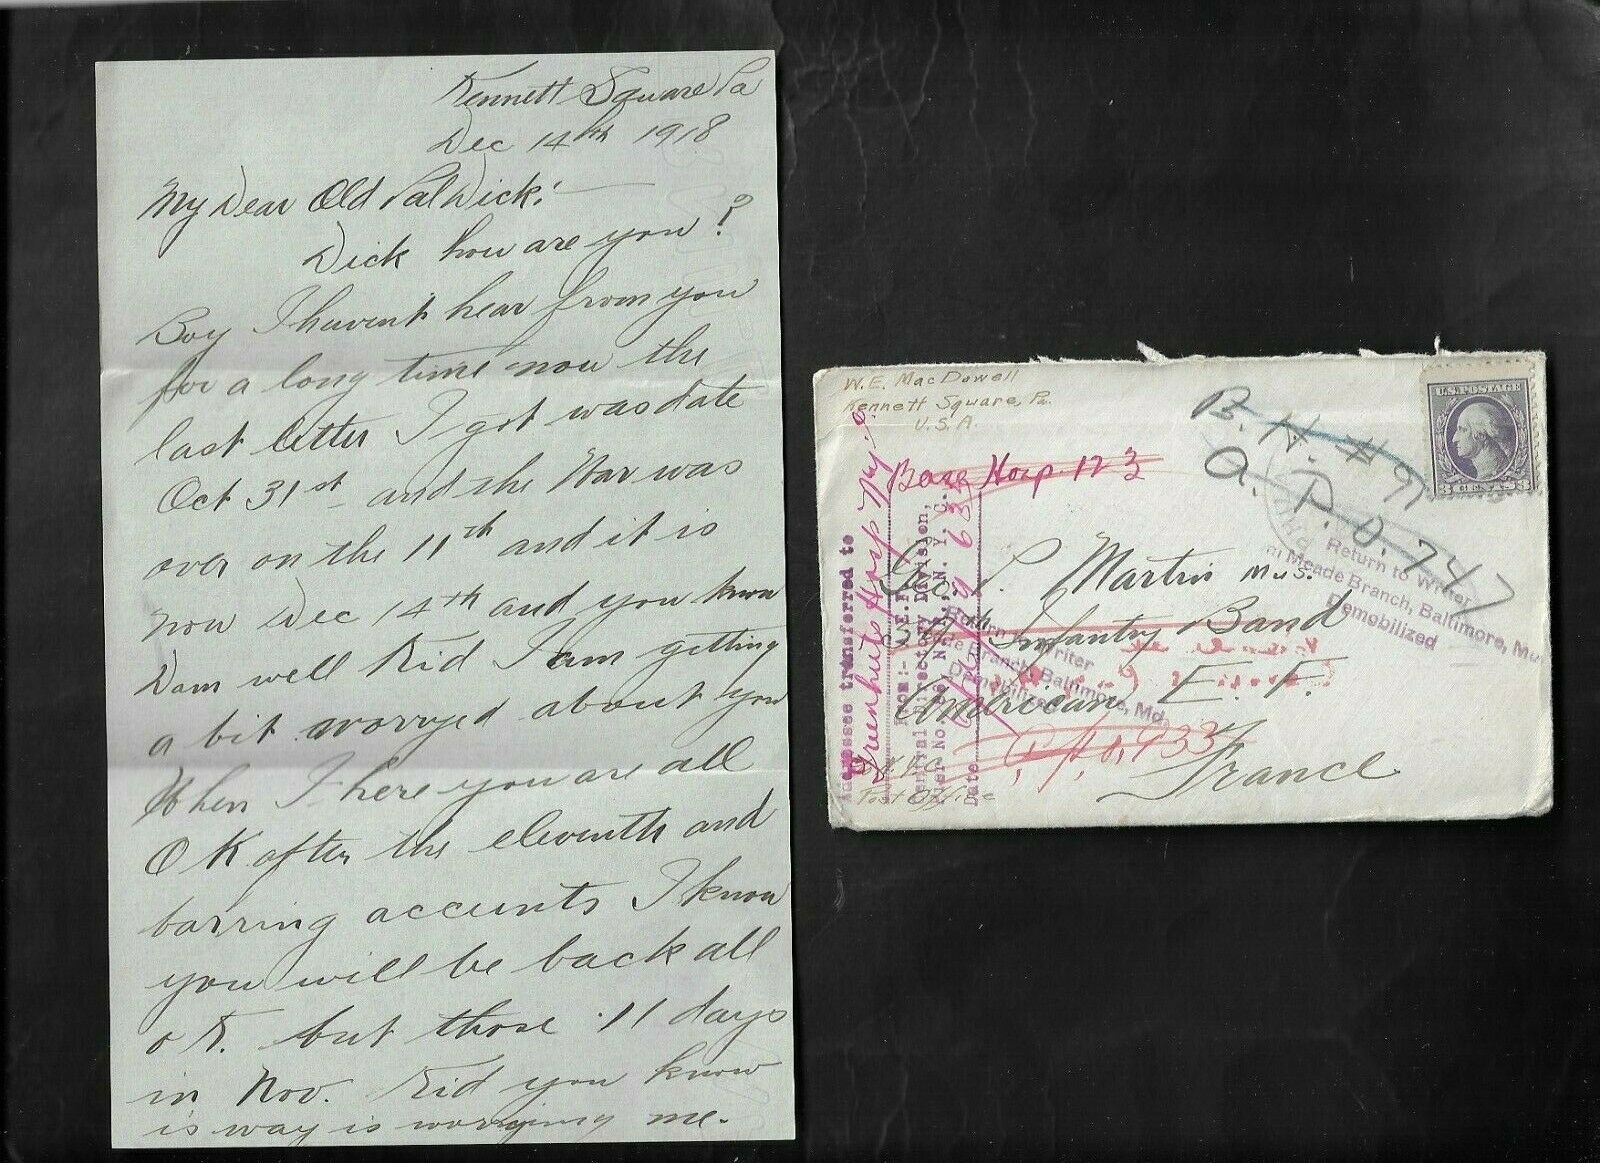 Kennett Square Pa
Dec 14th 1918
My Dear Old Pal Dick:
Dick how are you?
Boy I havent hear from you
for a long time now the
last letter I got was date
Oct 31st and the War was
over on the 11th and it is
now Dec 14th and you know
Dam well Kid I am getting
a bit worryed about you
When I here you are all
OK after the eleventh and
barring accunts I know
you will be back all
o K. but those 11 days
in Nov. Kid you know
is way is worrying me.
W.E. MacDowell
Kennett Square, Pa.
U.S.A.
B. H. #91
A. P. O. 747
U.S. POSTAGE
3 CENTS 3
Base Hosp 123
Geo P. Martin Mus.
Infantry Band
American E. F.
France
Post Office
Return to Writer
Meade Branch, Baltimore, Md.
Demobilized
Return Writer
Branch, Baltimore, Md.
Demobilized
Addressee transferred to
Greenhute Hosp N.Y.
From:- A.E.F.
Central Directory Division,
N. Y. C.
Date